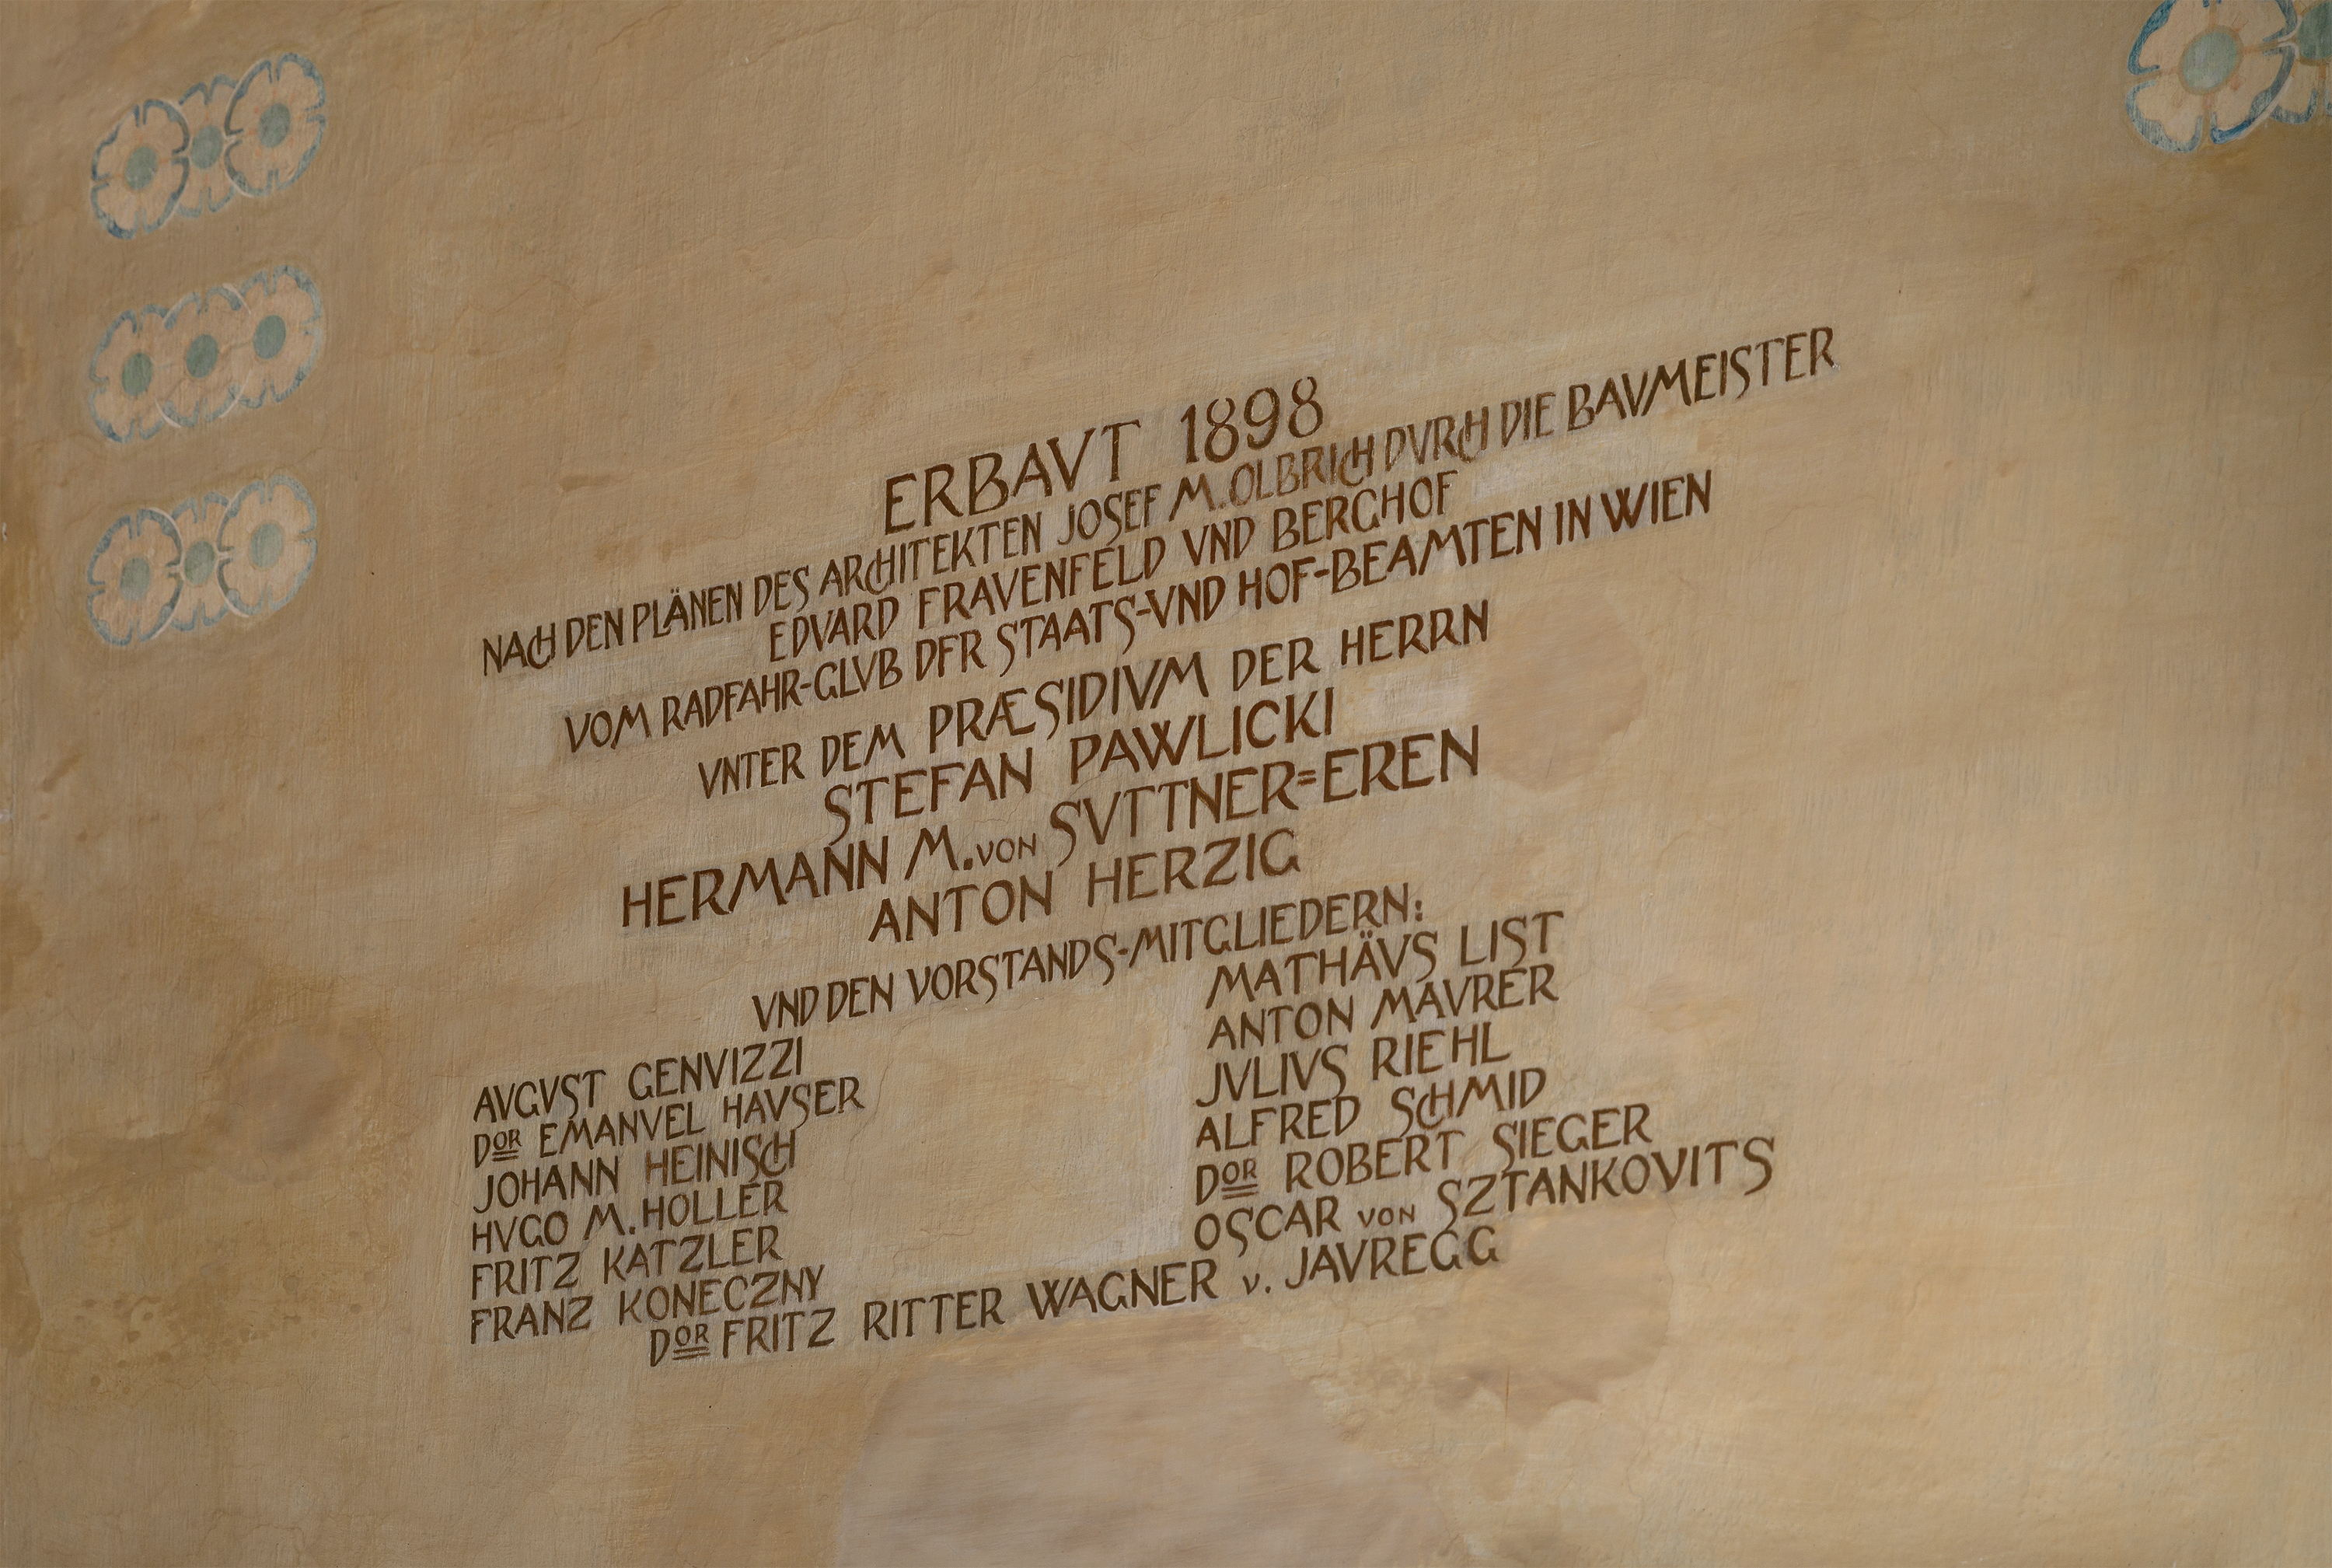 ERBAVT 1898
NACH DEN PLÄNEN DES ARCHITEKTEN JOSEF M. OLBRICH DVRCH DIE BAVMEISTER
EDVARD FRAVENFELD VND BERGHOF
VOM RADFAHR-CLVB DER STAATS-VND HOF-BEAMTEN IN WIEN
VNTER DEM PRÆSIDIVM DER HERRN
STEFAN PAWLICKI
HERMANN M. VON SVTTNER=EREN
ANTON HERZIG
VND DEN VORSTANDS-MITGLIEDERN:
AVGVST GENVIZZI
DOR EMANVEL HAVSER
JOHANN HEINISCH
HVGO M. HOLLER
FRITZ KATZLER
FRANZ KONECZNY
MATHÄVS LIST
ANTON MAVRER
JVLIVS RIEHL
ALFRED SCHMID
DOR ROBERT SIEGER
OSCAR VON SZTANKOVITS
DOR FRITZ RITTER WAGNER v. JAVREGG